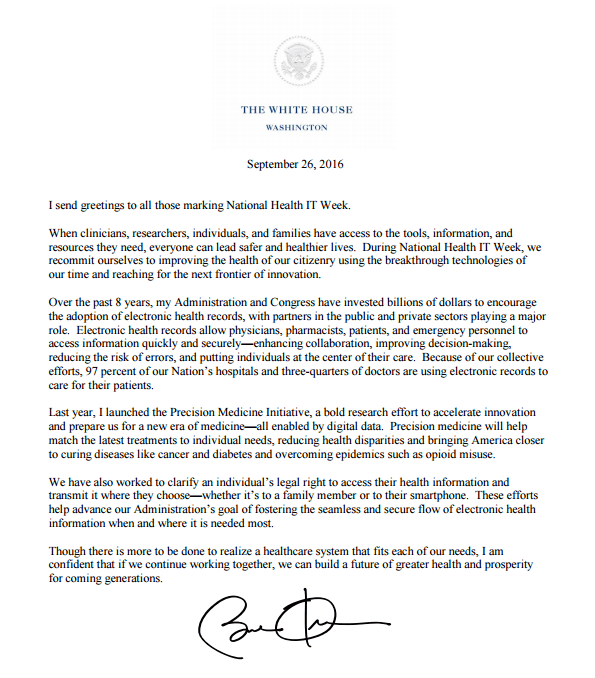 THE WHITE HOUSE
WASHINGTON
September 26, 2016
I send greetings to all those marking National Health IT Week.
When clinicians, researchers, individuals, and families have access to the tools, information, and
resources they need, everyone can lead safer and healthier lives.  During National Health IT Week, we
recommit ourselves to improving the health of our citizenry using the breakthrough technologies of
our time and reaching for the next frontier of innovation.
Over the past 8 years, my Administration and Congress have invested billions of dollars to encourage
the adoption of electronic health records, with partners in the public and private sectors playing a major
role.  Electronic health records allow physicians, pharmacists, patients, and emergency personnel to
access information quickly and securely—enhancing collaboration, improving decision-making,
reducing the risk of errors, and putting individuals at the center of their care.  Because of our collective
efforts, 97 percent of our Nation's hospitals and three-quarters of doctors are using electronic records to
care for their patients.
Last year, I launched the Precision Medicine Initiative, a bold research effort to accelerate innovation
and prepare us for a new era of medicine—all enabled by digital data.  Precision medicine will help
match the latest treatments to individual needs, reducing health disparities and bringing America closer
to curing diseases like cancer and diabetes and overcoming epidemics such as opioid misuse.
We have also worked to clarify an individual's legal right to access their health information and
transmit it where they choose—whether it's to a family member or to their smartphone.  These efforts
help advance our Administration's goal of fostering the seamless and secure flow of electronic health
information when and where it is needed most.
Though there is more to be done to realize a healthcare system that fits each of our needs, I am
confident that if we continue working together, we can build a future of greater health and prosperity
for coming generations.